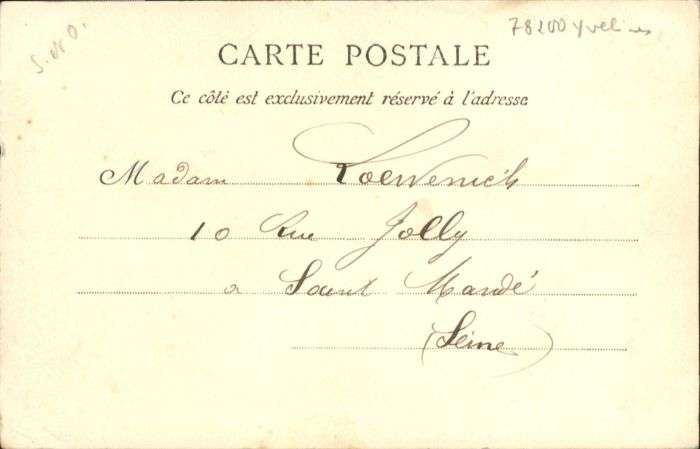 78200 Yvelines
S. et O.
CARTE POSTALE
Ce côté est exclusivement réservé à l'adresse
Madam Loewenich
10 Rue Jolly
a Saint Mandé
(Seine)